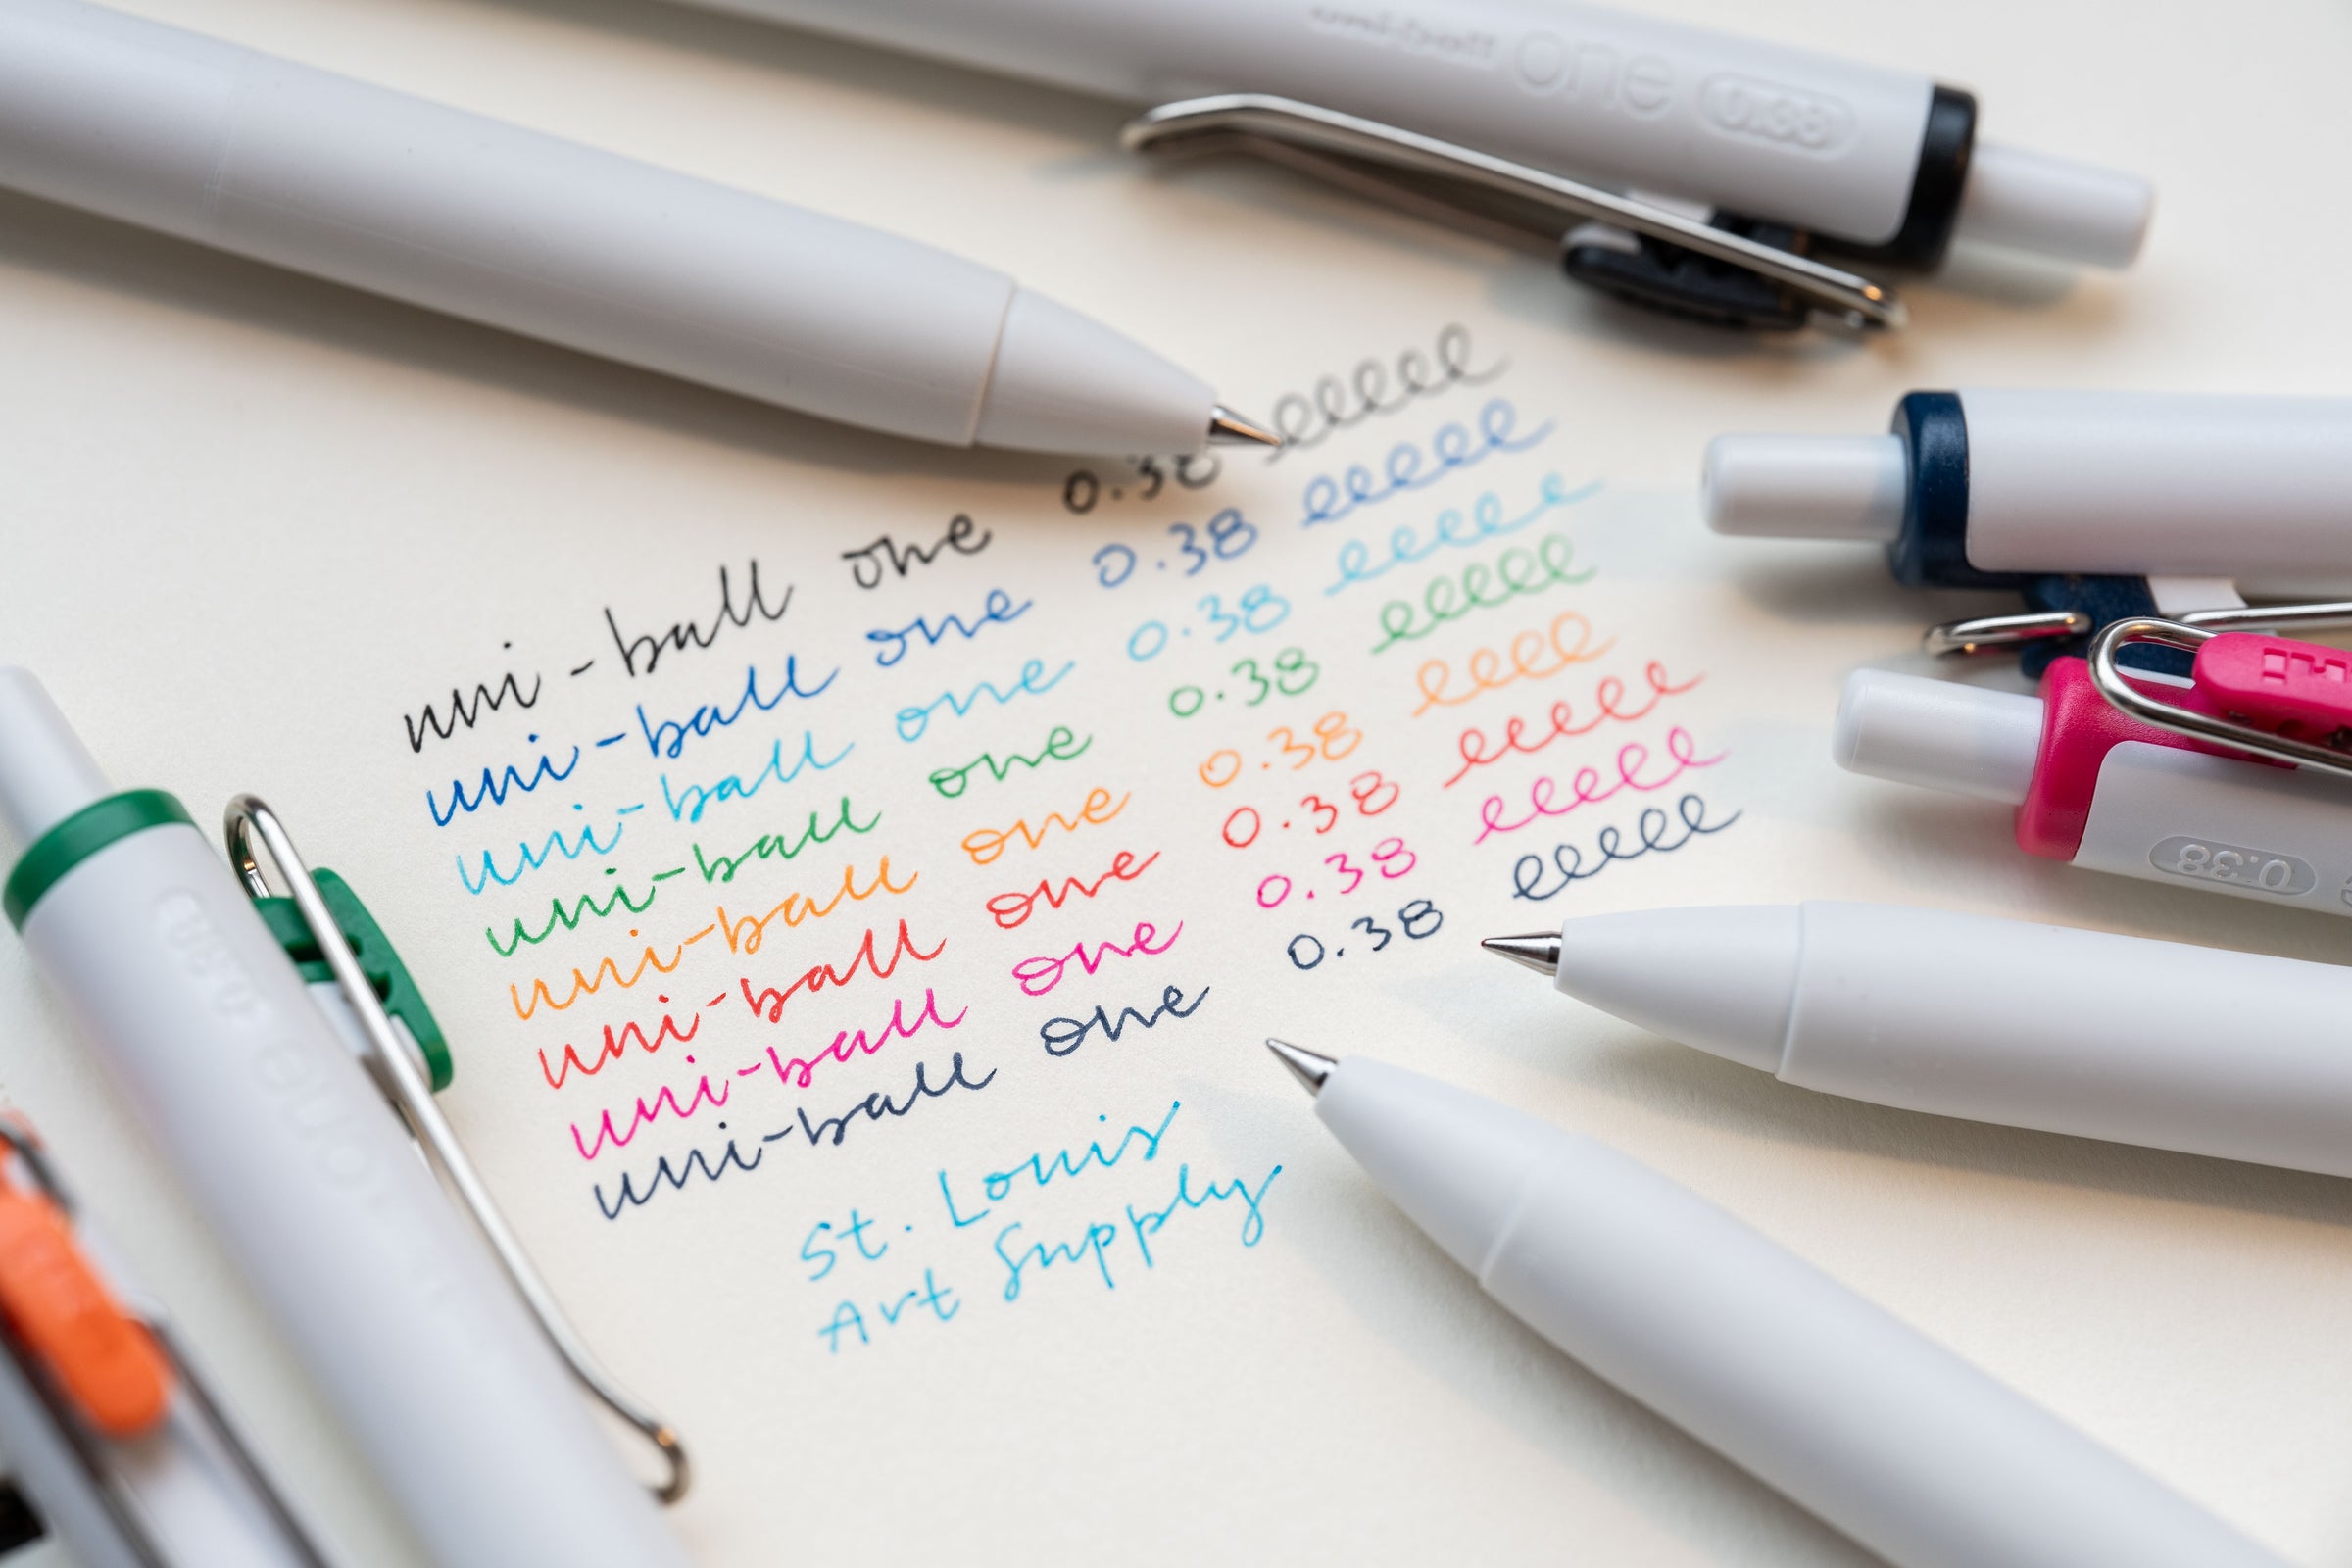 uni-ball one 0.38
uni-ball one 0.38
uni-ball one 0.38
uni-ball one 0.38
uni-ball one 0.38
uni-ball one 0.38
uni-ball one 0.38
uni-ball one 0.38
uni-ball one 0.38
St. Louis
Art Supply
0.38